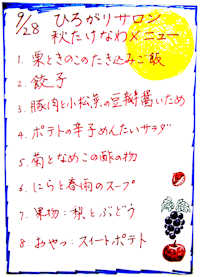 9/28 ひろがりサロン
秋たけなわメニュー
1. 栗ときのこのたき込みご飯
2. 餃子
3. 豚肉と小松菜の豆瓣醤いため
4. ポテトの辛子めんたいサラダ
5. 菊となめこの酢の物
6. にらと春雨のスープ
7. 果物:梨とぶどう
8. おやつ:スイートポテト